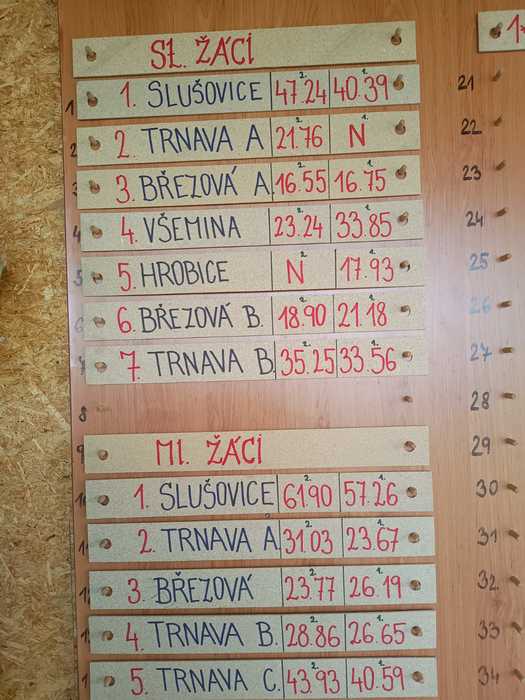 St. ŽÁCI
1 1. SLUŠOVICE 2. 47.24 1. 40.39
2 2. TRNAVA A 2. 21.76 1. N
3 3. BŘEZOVÁ A 2. 16.55 1. 16.75
4 4. VŠEMINA 2. 23.24 1. 33.85
5 5. HROBICE 2. N 1. 17.93
6 6. BŘEZOVÁ B. 2. 18.90 1. 21.18
7 7. TRNAVA B. 2. 35.25 1. 33.56
8
9 Ml. ŽÁCI
10 1. SLUŠOVICE 2. 61.90 1. 57.26
11 2. TRNAVA A 2. 31.03 1. 23.67
12 3. BŘEZOVÁ 2. 23.77 1. 26.19
13 4. TRNAVA B. 2. 28.86 1. 26.65
5. TRNAVA C. 2. 43.93 1. 40.59
21
22
23
24
25
26
27
28
29
30
31
32
33
34